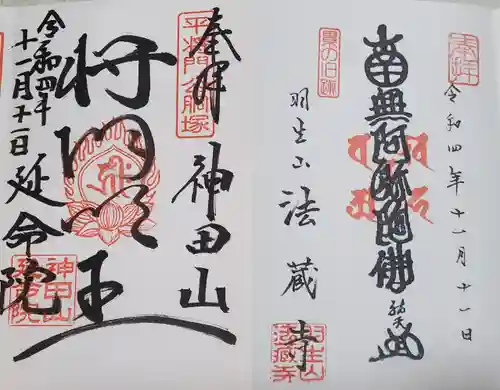 奉拝
平将門公胴塚
神田山
将門明王
令和四年
十一月十一日
延命院
神田山
延命院
奉拝
令和四年十一月十一日
南無阿弥陀佛
羽生山
法蔵寺
の旧跡
羽生山
法蔵寺